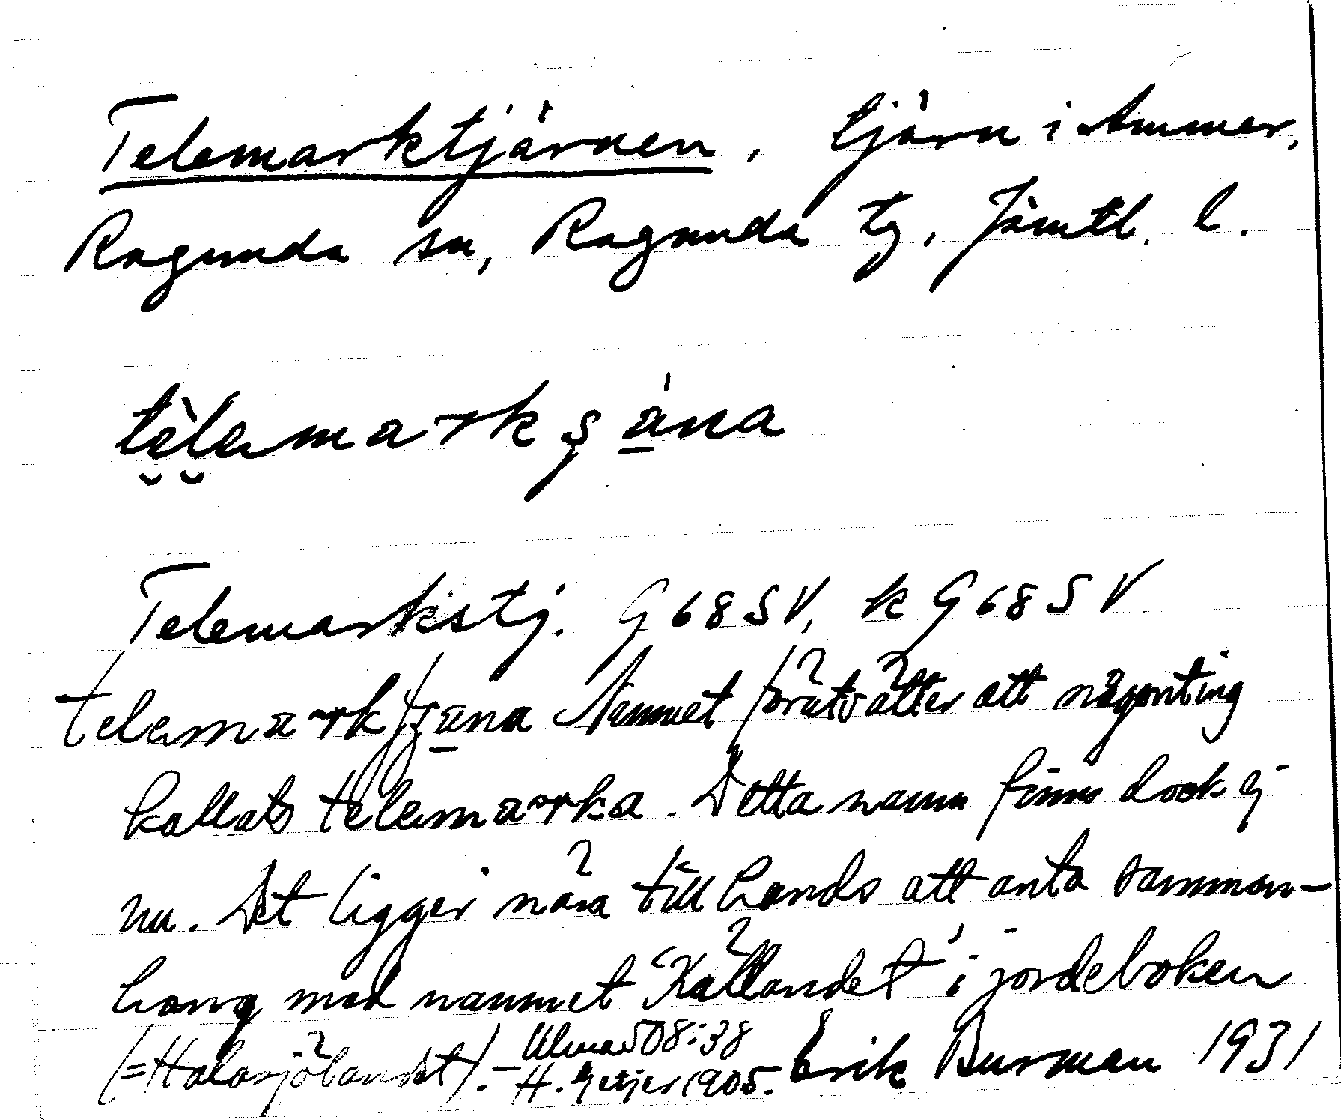 Telemarktjärnen, tjärn i Ammer,
Ragunda sn, Ragunda tg, Jämtl. l.
tèlemarkʂa̲na
Telemarkstj. G 68 SV, k G 68 SV
telemarkʂa̲na Namnet förutsätter att någonting
kallats telemarka. Detta namn finns dock ej
nu. Det ligger nära till hands att anta samman-
hang med namnet "Källandet" i jordeboken
(=Halasjölandet). – Ulma 508:38
H. Geijer 1905. Erik Burman 1931